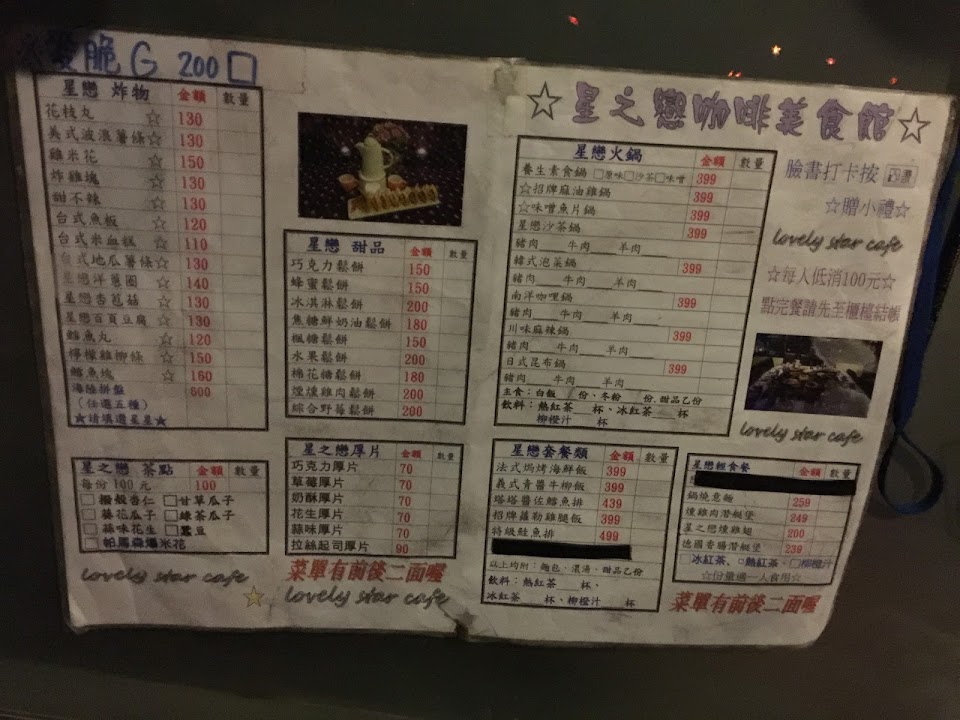 爱脆G 200 □
星戀 炸物 金額 數量
花枝丸 ☆ 130
美式波浪薯條☆ 130
雞米花 150
炸雞塊 ☆ 130
甜不辣 ☆ 130
台式魚板 ☆ 120
台式米血糕 ☆ 110
台式地瓜薯條☆ 130
星戀洋蔥圈 ☆ 140
星戀杏苞菇 ☆ 130
星戀百頁豆腐 ☆ 130
鱈魚丸 ☆ 120
檸檬雞柳條 ☆ 150
鱈魚塊 ☆ 160
海陸拼盤 600
(任選五種)
★請填選星星★
星之戀 茶點 金額 數量
每份100元 100
□椒鹽杏仁 □甘草瓜子
□葵花瓜子 □綠茶瓜子
□蒜味花生 □蠶豆
□帕馬森爆米花
lovely star cafe
星戀 甜品 金額 數量
巧克力鬆餅 150
蜂蜜鬆餅 150
冰淇淋鬆餅 200
焦糖鮮奶油鬆餅 180
楓糖鬆餅 150
水果鬆餅 200
棉花糖鬆餅 180
煙燻雞肉鬆餅 200
綜合野莓鬆餅 200
星之戀厚片 金額 數量
巧克力厚片 70
草莓厚片 70
奶酥厚片 70
花生厚片 70
蒜味厚片 70
拉絲起司厚片 90
菜單有前後二面喔
☆ lovely star cafe
☆星之戀咖啡美食館☆
星戀火鍋 金額 數量
養生素食鍋 □原味□沙茶□味噌 399
☆招牌麻油雞鍋 399
☆味噌魚片鍋 399
星戀沙茶鍋 399
豬肉___牛肉___羊肉___
韓式泡菜鍋 399
豬肉___牛肉___羊肉___
南洋咖哩鍋 399
豬肉___牛肉___羊肉___
川味麻辣鍋 399
豬肉___牛肉___羊肉___
日式昆布鍋 399
豬肉___牛肉___羊肉___
主食:白飯___份、冬粉___份,甜品乙份
飲料:熱紅茶___杯、冰紅茶___杯
柳橙汁___杯
星戀套餐類 金額 數量
法式焗烤海鮮飯 399
義式青醬牛柳飯 399
塔塔醬佐鱈魚排 439
招牌蘿勒雞腿飯 399
特級鮭魚排 499
以上均附:麵包、濃湯、甜品乙份
飲料:熱紅茶___杯、
冰紅茶___杯、柳橙汁___杯
臉書打卡按讚
☆贈小禮☆
lovely star cafe
☆每人低消100元☆
點完餐請先至櫃檯結帳
lovely star cafe
星戀輕食餐 金額 數量
鍋燒意麵 259
燻雞肉潛艇堡 249
星之戀燻雞翅 200
德國香腸潛艇堡 239
□冰紅茶、○熱紅茶、□柳橙汁
☆份量適一人食用☆
菜單有前後二面喔